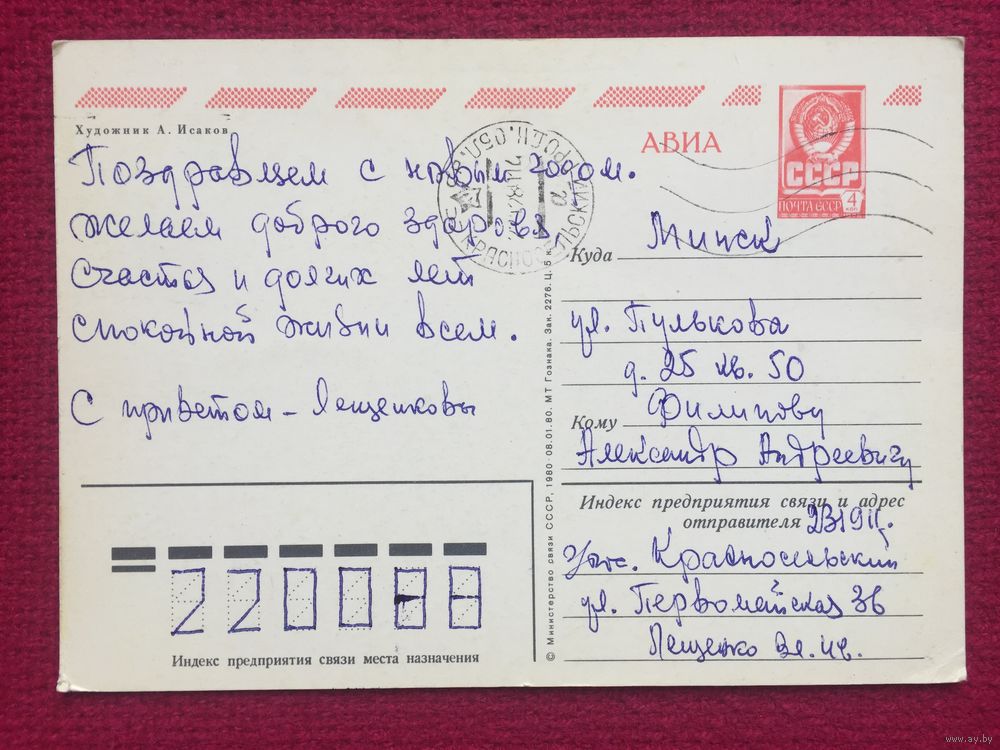 Художник А. Исаков
АВИА
СССР
ПОЧТА СССР
4
Поздравляем с новым годом.
желаем доброго здоровья
счастья и долгих лет
спокойной жизни всем.
С приветом - Лещенковы
Куда Минск
ул. Пулькова
д. 25 кв. 50
Кому Филипову
Александр Андреевичу
Индекс предприятия связи и адрес
отправителя 231911
Красносельский
ул. Первомайская 36
Лещенко
220088
Индекс предприятия связи места назначения
© Министерство связи СССР, 1980 · 08.01.80. МТ Гознака. Зак. 2276. Ц. 5 к.
www.ay.by